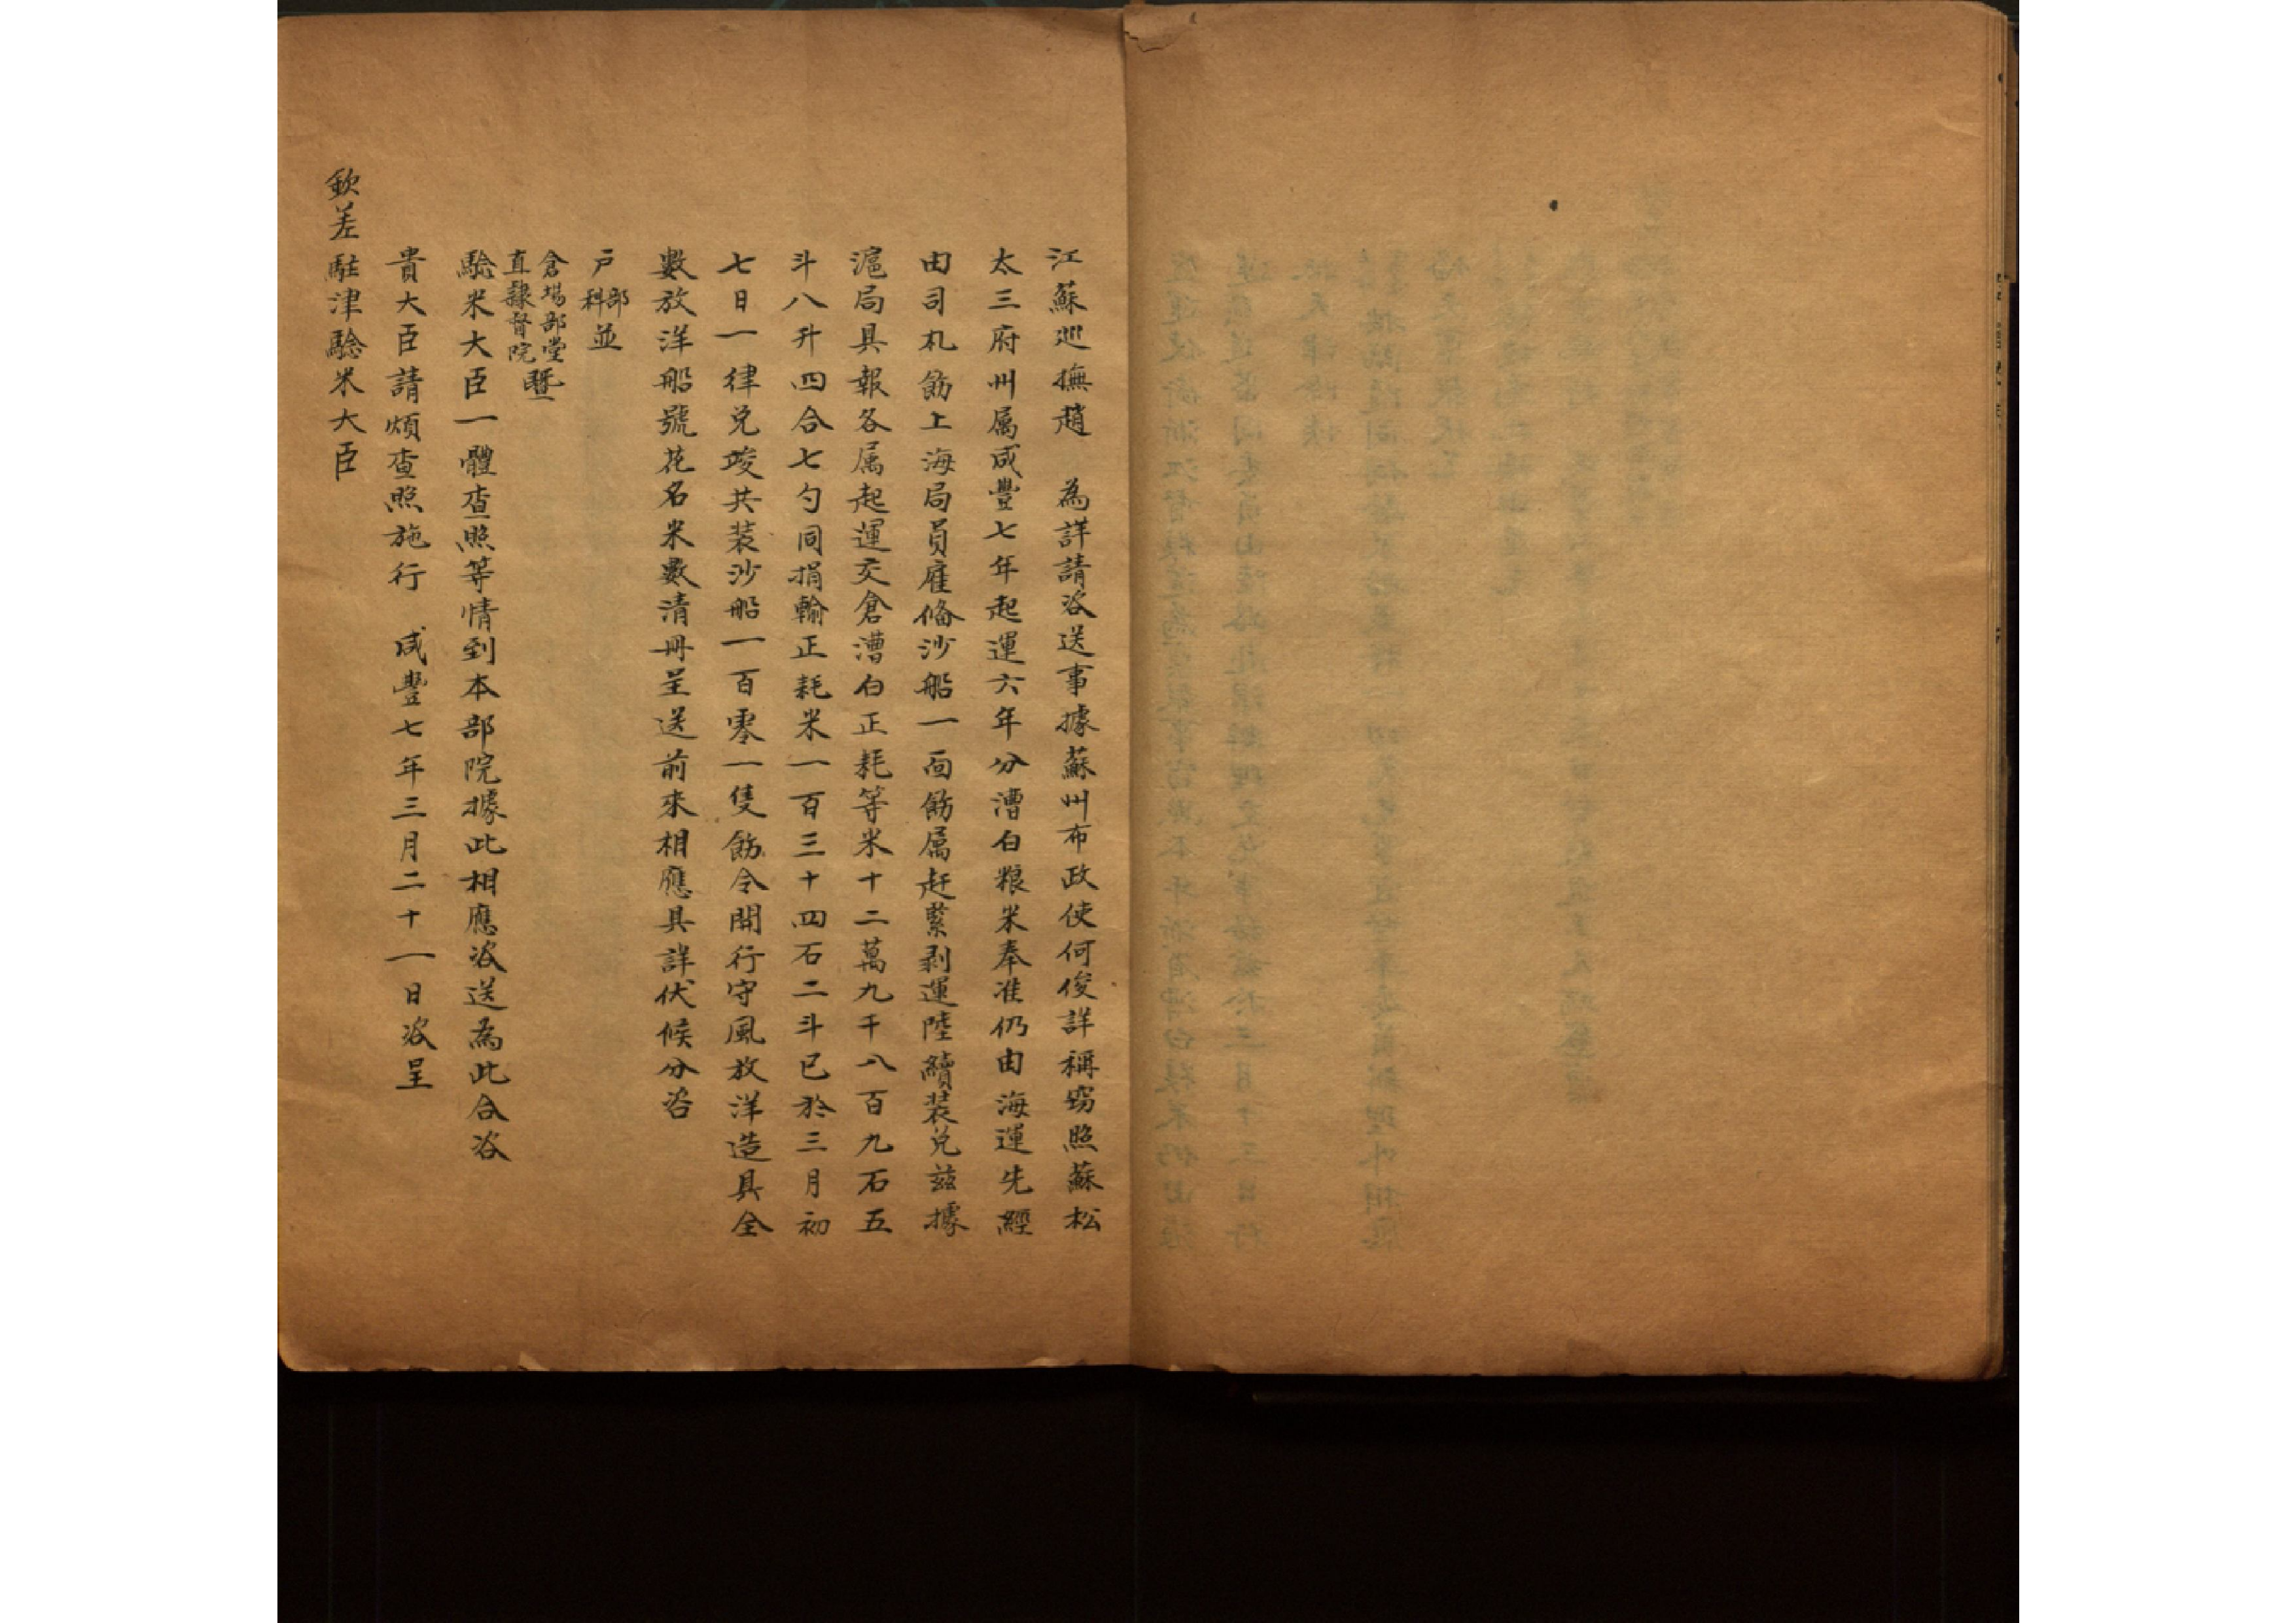 江蘇巡撫趙　為詳請咨送事據蘇州布政使何俊詳稱竊照蘇松
太三府州属咸豐七年起運六年分漕白粮米奉准仍由海運先經
由司札飭上海局員雇俻沙船一面飭属赶緊剥運陸續裝兑茲據
滬局具報各属起運交倉漕白正耗等米十二萬九千八百九石五
斗八升四合七勺同捐輸正耗米一百三十四石二斗已於三月初
七日一律兑竣共装沙船一百零一隻飭令開行守風放洋造具全
數放洋船號花名米數清冊呈送前來相應具詳伏候分咨
戶部科並
倉場部堂
直隸督院暨
驗米大臣一體查照等情到本部院據此相應咨送為此合咨
貴大臣請煩查照施行　咸豐七年三月二十一日咨呈
欽差駐津驗米大臣